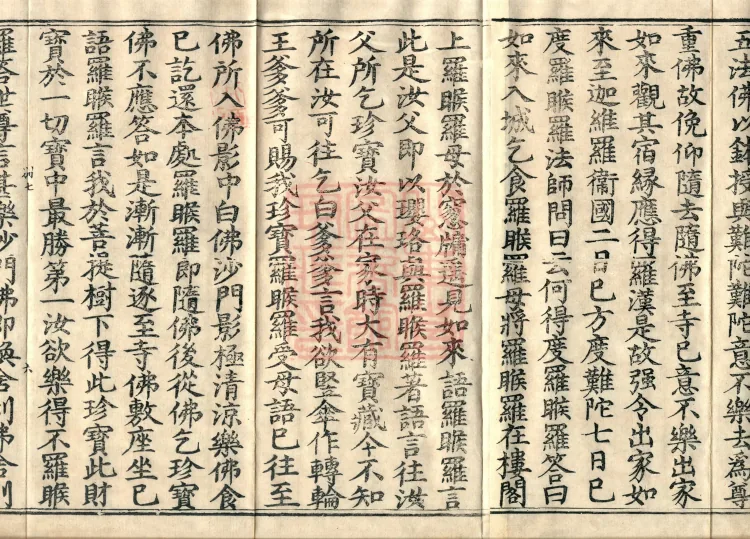 五法佛以鉢授與難陀難陀意不樂去為尊
重佛故俛仰隨去隨佛至寺已意不樂出家
如來觀其宿緣應得羅漢是故强令出家如
來至迦維羅衛國二日已方度難陀七日已
度羅睺羅法師問曰云何得度羅睺羅答曰
如來入城乞食羅睺羅母將羅睺羅在樓閣
上羅睺羅母於窓牖遥見如來語羅睺羅言
此是汝父即以瓔珞與羅睺羅著語言往汝
父所乞珍寶汝父在家時大有寶藏今不知
所在汝可往乞白爹爹言我欲竪傘作轉輪
王爹爹可賜我珍寶羅睺羅受母語已往至
佛所入佛影中白佛沙門影極清涼樂佛食
已訖還本處羅睺羅即隨佛後從佛乞珍寶
佛不應答如是漸漸隨逐至寺佛敷座坐已
語羅睺羅言我於菩提樹下得此珍寶此財
寶於一切寶中最勝第一汝欲樂得不羅睺
羅答世尊言甚樂沙門佛即喚舍利弗舍利